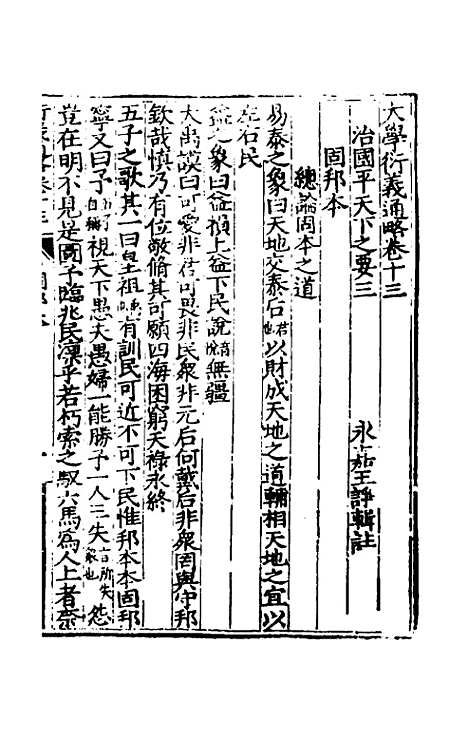 大學衍義通略卷十三
永嘉王諍輯註
治國平天下之要三
固邦本
總論固本之道
易泰之象曰天地交泰后君也以財成天地之道輔相天地之宜以
左右民
益之彖曰益損上益下民說音悅無疆
大禹謨曰可愛非君可畏非民衆非元后何戴后非衆罔與守邦
欽哉慎乃有位敬脩其可願四海困窮天祿永終
五子之歌其一曰皇祖禹也有訓民可近不可下民惟邦本本固邦
寧又曰予五子自稱視天下愚夫愚婦一能勝予一人三失言所失衆也怨
豈在明不見是圖予臨兆民凜乎若朽索之馭六馬爲人上者奈